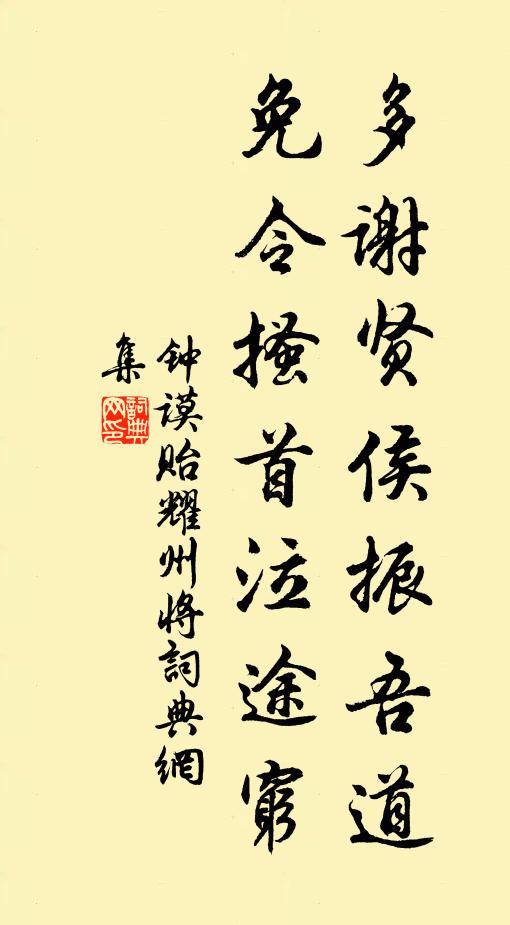 多谢贤侯振吾道
免令搔首泣途窮
钟谟贻耀州将詞典網
集
詞典
网印